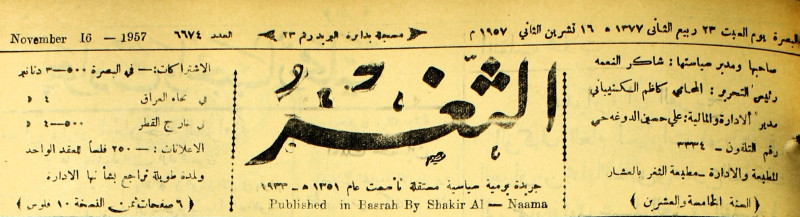 البصرة يوم السبت ٢٣ ربيع الثانى ١٣٧٧ ھ ١٦ تشرين الثاني ١٩٥٧ م
﴿ مسجلة بدائرة البريد رقم ٢٣ ﴾
العدد ٦٦٧٤
November 16 - 1957
صاحبها ومدير سياستها : شاكر النعمه
رئيس التحرير : المحامي كاظم
مدير الادارة والمالية : علي حسين الدوغه جي
رقم التلفون - ٣٣٣٤
المطبعة والادارة - مطبعة الثغر بالعشار
﴿ السنة الخامسة والعشرين ﴾
الثغر
جريدة يومية سياسية مستقلة تأسست عام ١٣٥١ ھ - ١٩٣٣
Published in Basrah By Shakir Al - Naama
الاشتراكات : — في البصرة ٥٠٠—٣ دنانير
في انحاء العراق ٤ د
في خارج القطر ٥٠٠—٤ د
الاعلانات : — ٢٥٠ فلساً للعقد الواحد
ولمدة طويلة تراجع بشأنها الادارة
﴿ ٦ صفحات ثمن النسخة ١٠ فلوس ﴾